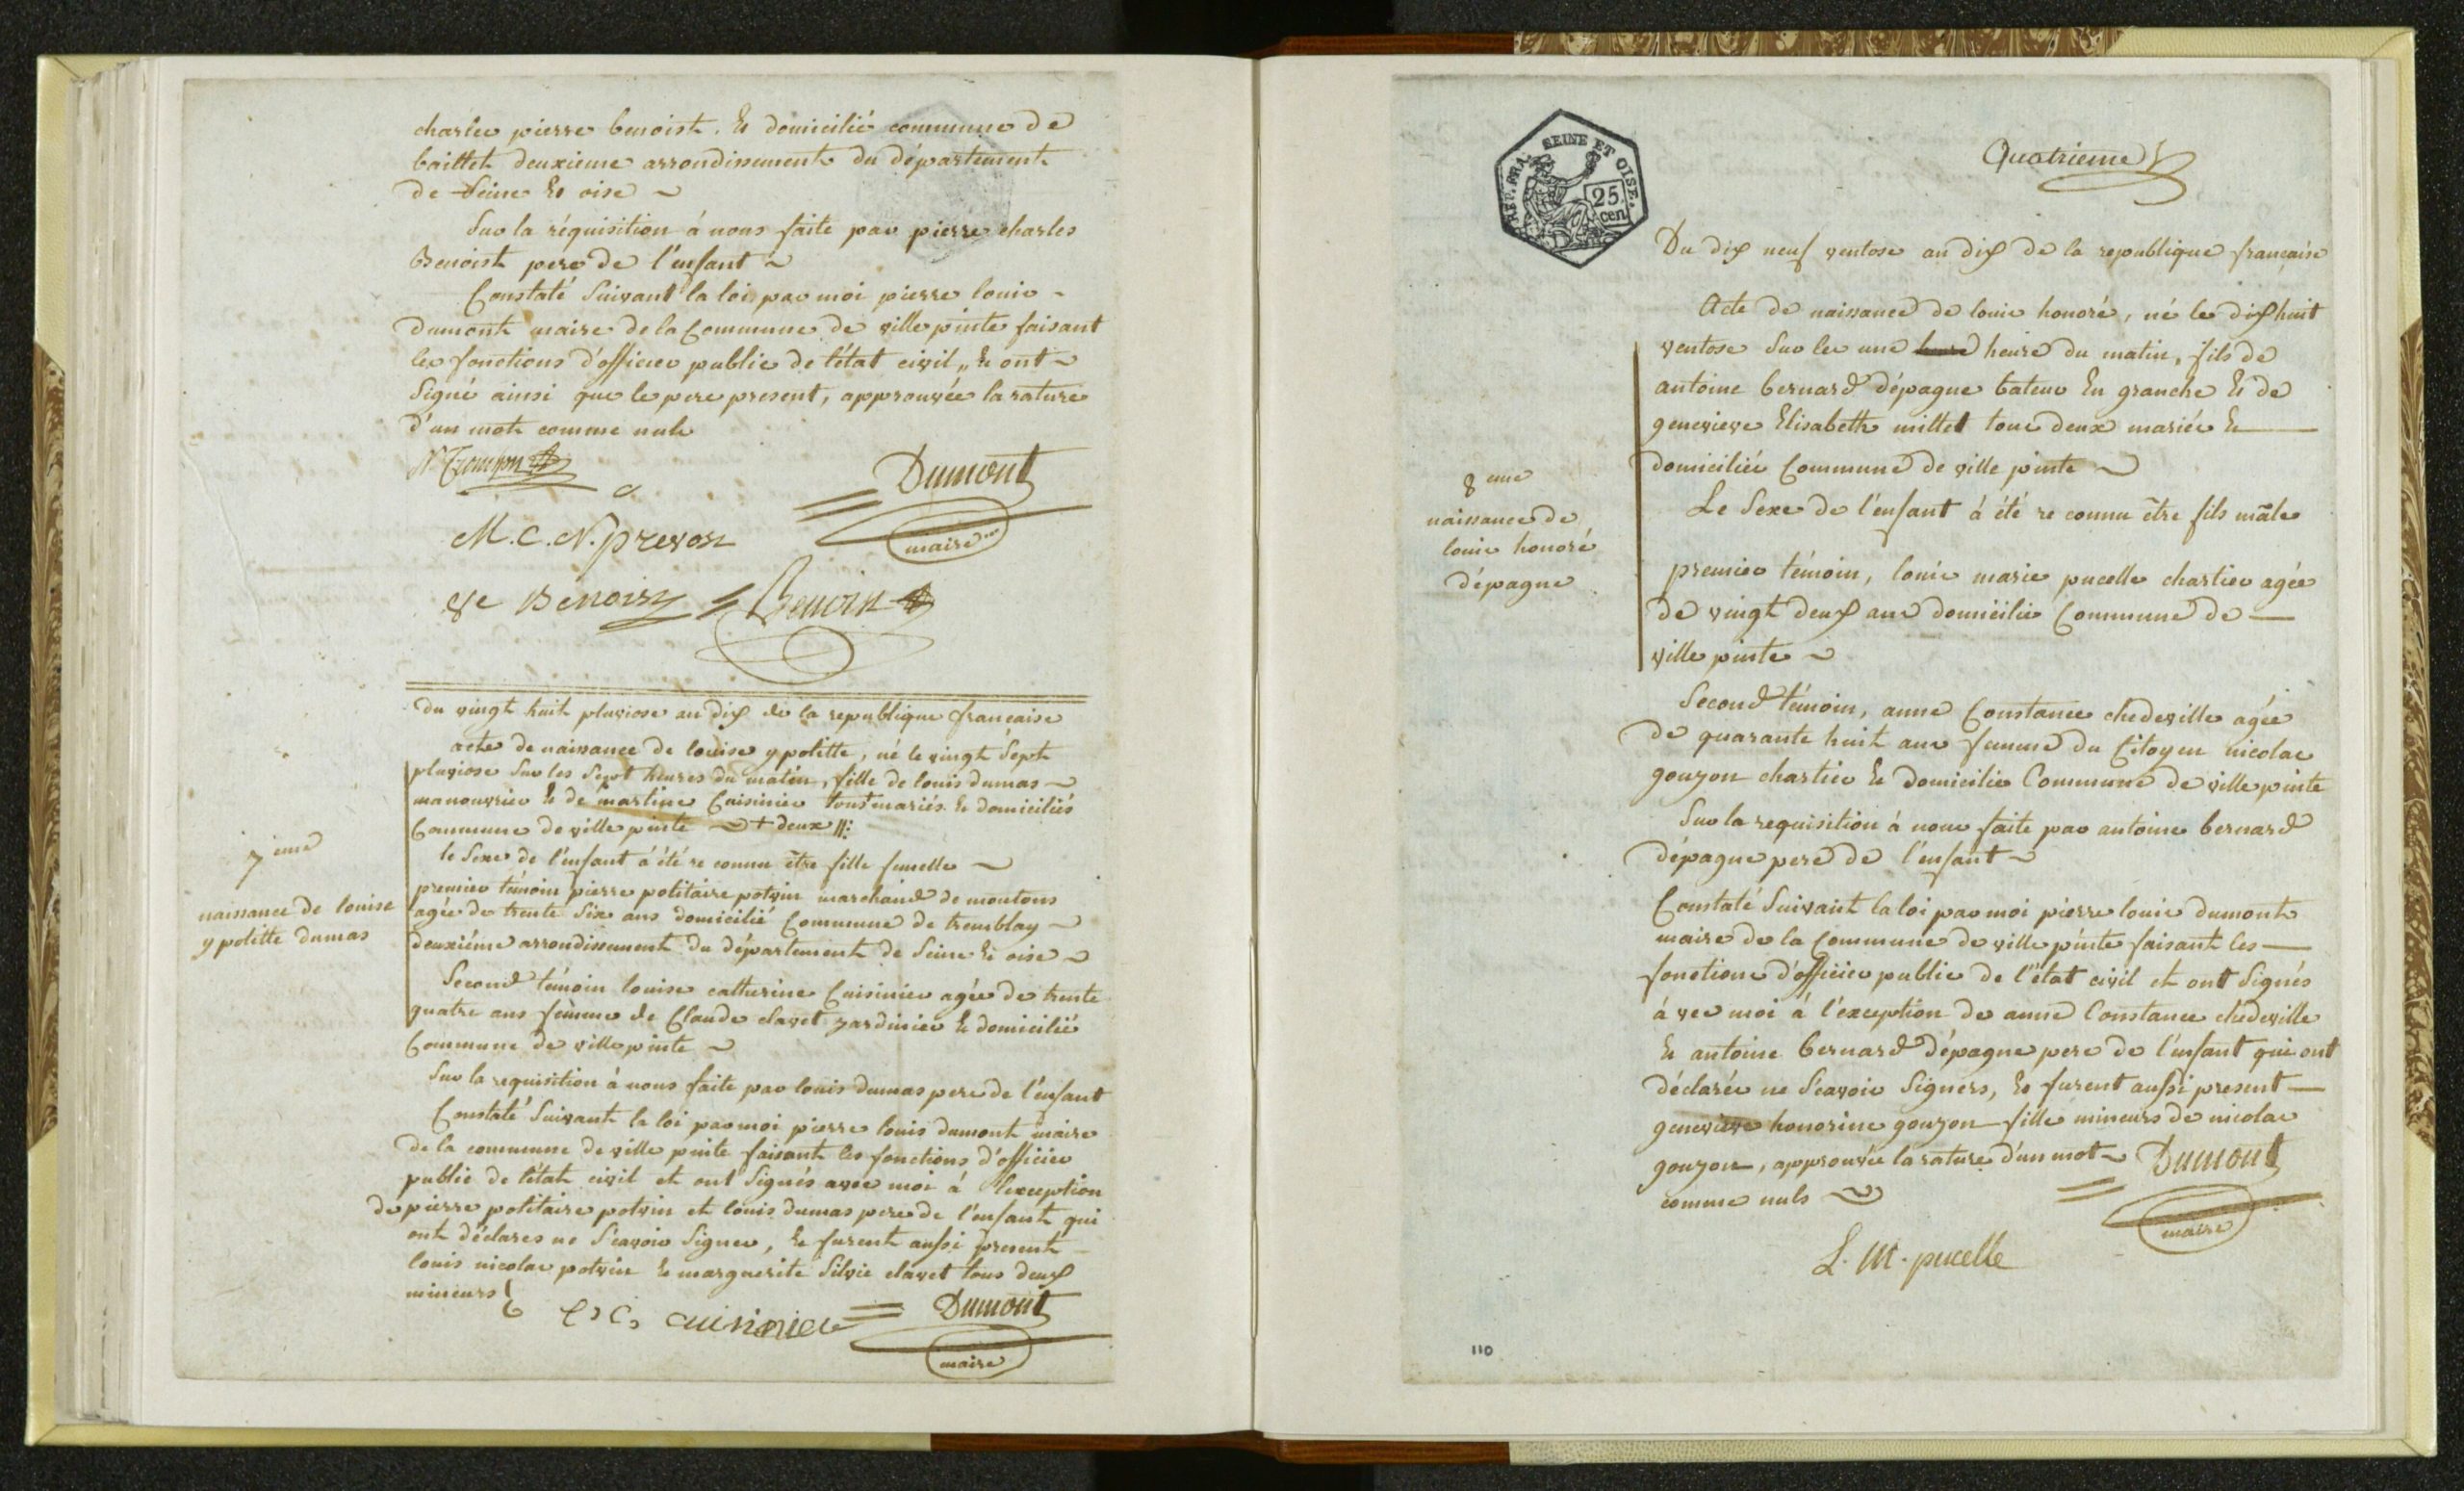 charles pierre benoist. Et domicilié commune de
baillet deuxieme arrondissement du département
de Seine Et oise
Sur la réquisition à nous faite par pierre charles
Benoist pere de l'enfant
Constaté Suivant la loi par moi pierre louis
dumont maire de la Commune de ville pinte faisant
les fonctions d'officier public de l'état civil, Et ont
Signé ainsi que le pere present, approuvée la rature
d'un mot comme nule
Dumont
maire
M. C. N. prevost
Benoist Benoist
Du vingt huit pluviose an dix de la republique francaise
acte de naissance de louise ypolitte, né le vingt Sept
pluviose Sur les Sept heures du matin, fille de louis dumas
manouvrier Et de martine Cuisinier tous mariés Et domiciliés
Commune de ville pinte + deux
7 eme
naissance de louise
ypolitte dumas
le Sexe de l'enfant à été re connu être fille femelle
premier témoin pierre politaire potvin marchand de moutons
agée de trente Six ans domicilié Commune de tremblay
deuxiéme arrondissement du département de Seine Et oise
Second témoin louise catherine Cuisinier agée de trente
quatre ans femme de Claude clavet jardinier Et domicilié
Commune de ville pinte
Sur la requisition à nous faite par louis dumas pere de l'enfant
Constaté Suivant la loi par moi pierre louis dumont maire
de la commune de ville pinte faisant les fonctions d'officier
public de l'état civil et ont Signés avec moi à l'exception
de pierre politaire potvin et louis dumas pere de l'enfant qui
ont déclares ne Sçavoir Signer, Et furent aussi present
louis nicolas potvin Et marguerite Silvie clavet tous deux
mineurs
cuisinier Dumont
maire
REP. FRA. SEINE ET OISE.
25 cen
Quatrieme
Du dix neuf ventose an dix de la republique française
Acte de naissance de louis honoré, né le dix huit
ventose Sur les une heure du matin, fils de
antoine bernard dépagne bateur En granche Et de
genevieve Elisabeth millet tous deux mariés Et
domiciliés Commune de ville pinte
8 eme
naissance de
louis honoré
dépagne
Le Sexe de l'enfant à été re connu être fils mâle
premier témoin, louis marie pucelle chartier agée
de vingt deux ans domicilié Commune de
ville pinte
Second témoin, anne Constance chedeville agée
de quarante huit ans femme du Citoyen nicolas
gouyon chartier Et domicilié Commune de ville pinte
Sur la requisition à nous faite par antoine bernard
dépagne pere de l'enfant
Constaté Suivant la loi par moi pierre louis dumont
maire de la Commune de ville pinte faisant les
fonctions d'officier public de l'état civil et ont Signés
à vec moi à l'exception de anne Constance chedeville
Et antoine bernard dépagne pere de l'enfant qui ont
déclarés ne Sçavoir Signers, Et furent aussi present
genevieve honorine gouyon fille mineurs de nicolas
gouyon, approuvée la rature d'un mot Dumont
comme nuls maire
L. M. pucelle
110